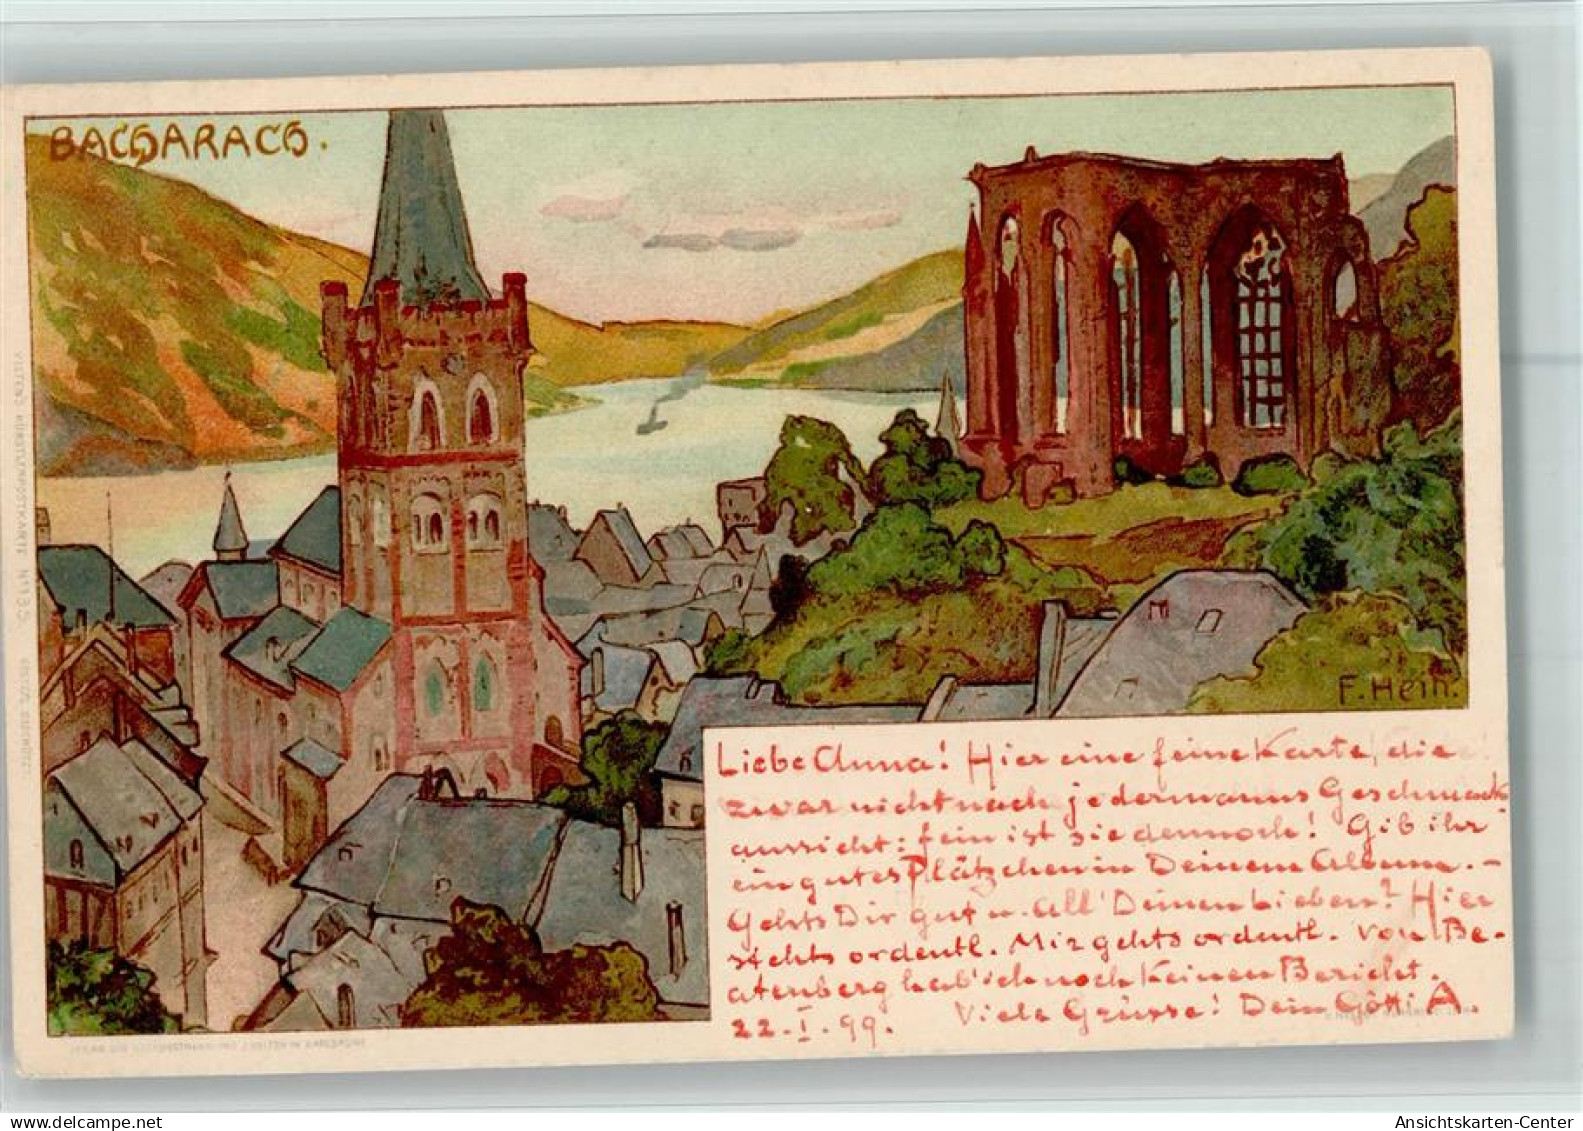 BACHARACH.
F. Hein.
Liebe Anna! Hier eine feine Karte, die
zwar nicht nach jedermanns Geschmack
aussieht: fein ist sie dennoch! Gib ihr
ein gutes Plätzchen in Deinem Album. –
Gehts Dir gut u. all' Deinen Lieben? Hier
stehts ordentl. Mir gehts ordentl. Von Be-
atenberg hab' ich noch keinen Bericht.
22. I. 99. Viele Grüsse! Dein Götti A.
VELTENS KÜNSTLERPOSTKARTE No 133.
Ansichtskarten-Center